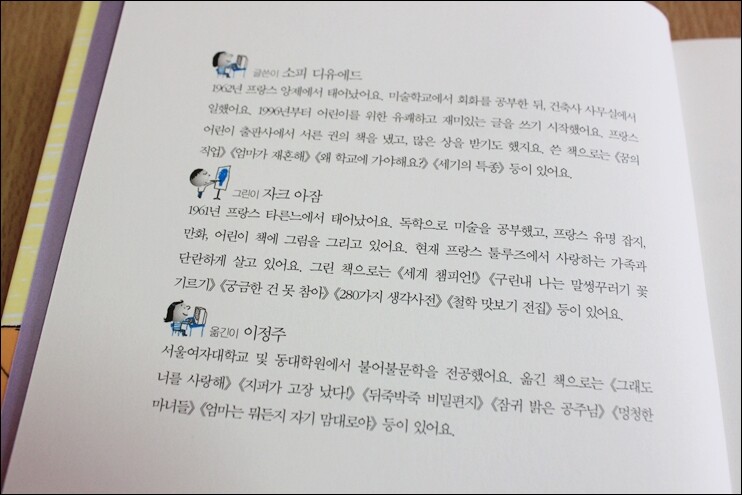 글쓴이 소피 디유에드
1962년 프랑스 앙제에서 태어났어요. 미술학교에서 회화를 공부한 뒤, 건축사 사무실에서
일했어요. 1996년부터 어린이를 위한 유쾌하고 재미있는 글을 쓰기 시작했어요. 프랑스
어린이 출판사에서 서른 권의 책을 냈고, 많은 상을 받기도 했지요. 쓴 책으로는 《꿈의
직업》《엄마가 재혼해》《왜 학교에 가야해요?》《세기의 특종》 등이 있어요.
그린이 자크 아잠
1961년 프랑스 타른느에서 태어났어요. 독학으로 미술을 공부했고, 프랑스 유명 잡지,
만화, 어린이 책에 그림을 그리고 있어요. 현재 프랑스 툴루즈에서 사랑하는 가족과
단란하게 살고 있어요. 그린 책으로는 《세계 챔피언!》《구린내 나는 말썽꾸러기 꽃
기르기》《궁금한 건 못 참아》《280가지 생각사전》《철학 맛보기 전집》 등이 있어요.
옮긴이 이정주
서울여자대학교 및 동대학원에서 불어불문학을 전공했어요. 옮긴 책으로는 《그래도
너를 사랑해》《지퍼가 고장 났다!》《뒤죽박죽 비밀편지》《잠귀 밝은 공주님》《멍청한
마녀들》《엄마는 뭐든지 자기 맘대로야》 등이 있어요.